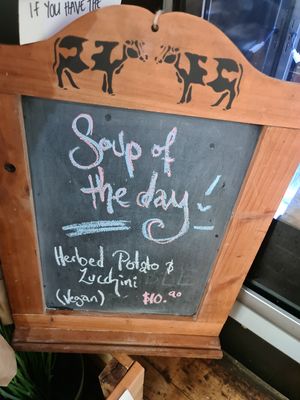 IF YOU HAVE THE
Soup of
the day!
Herbed Potato &
Zucchini
(Vegan) $10.90